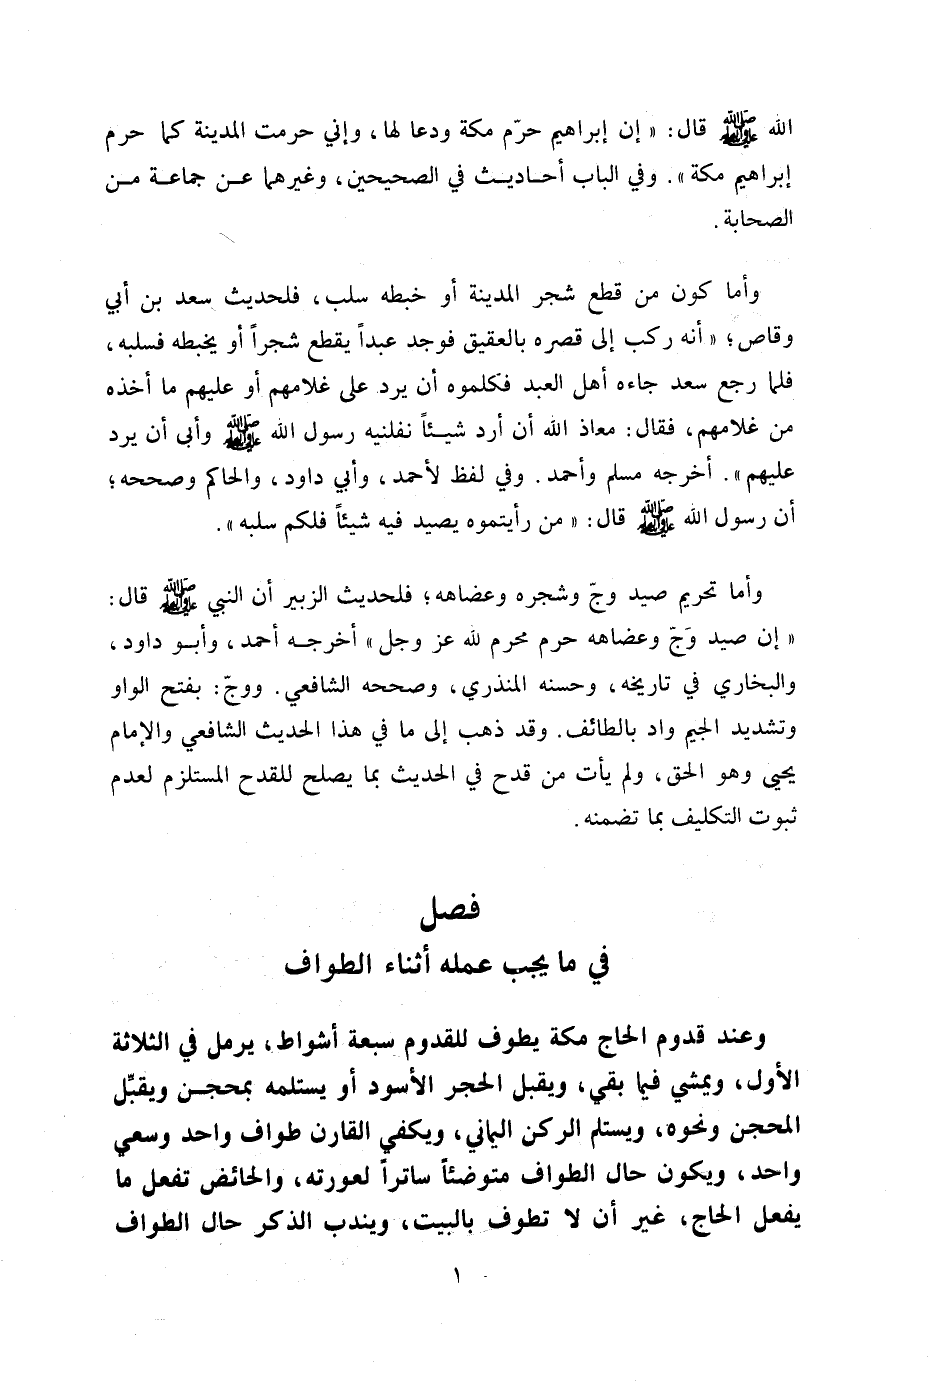 الله ﷺ قال: « إن إبراهيم حرّم مكة ودعا لها، وإني حرمت المدينة كما حرم
إبراهيم مكة ». وفي الباب أحاديث في الصحيحين، وغيرهما عن جماعة من
الصحابة.
وأما كون من قطع شجر المدينة أو خبطه سلب، فلحديث سعد بن أبي
وقاص؛ « أنه ركب إلى قصره بالعقيق فوجد عبداً يقطع شجراً أو يخبطه فسلبه،
فلما رجع سعد جاءه أهل العبد فكلموه أن يرد على غلامهم أو عليهم ما أخذه
من غلامهم، فقال: معاذ الله أن أرد شيئاً نفلنيه رسول الله ﷺ وأبى أن يرد
عليهم ». أخرجه مسلم وأحمد. وفي لفظ لأحمد، وأبي داود، والحاكم وصححه؛
أن رسول الله ﷺ قال: « من رأيتموه يصيد فيه شيئاً فلكم سلبه ».
وأما تحريم صيد وجّ وشجره وعضاهه؛ فلحديث الزبير أن النبي ﷺ قال:
« إن صيد وَجّ وعضاهه حرم محرم لله عز وجل » أخرجه أحمد، وأبو داود،
والبخاري في تاريخه، وحسنه المنذري، وصححه الشافعي. ووجّ: بفتح الواو
وتشديد الجيم واد بالطائف. وقد ذهب إلى ما في هذا الحديث الشافعي والإمام
يحيى وهو الحق، ولم يأت من قدح في الحديث بما يصلح للقدح المستلزم لعدم
ثبوت التكليف بما تضمنه.
فصل
في ما يجب عمله أثناء الطواف
وعند قدوم الحاج مكة يطوف للقدوم سبعة أشواط، يرمل في الثلاثة
الأول، ويمشي فيما بقي، ويقبل الحجر الأسود أو يستلمه بمحجن ويقبِّل
المحجن ونحوه، ويستلم الركن اليماني، ويكفي القارن طواف واحد وسعي
واحد، ويكون حال الطواف متوضئاً ساتراً لعورته، والحائض تفعل ما
يفعل الحاج، غير أن لا تطوف بالبيت، ويندب الذكر حال الطواف
١